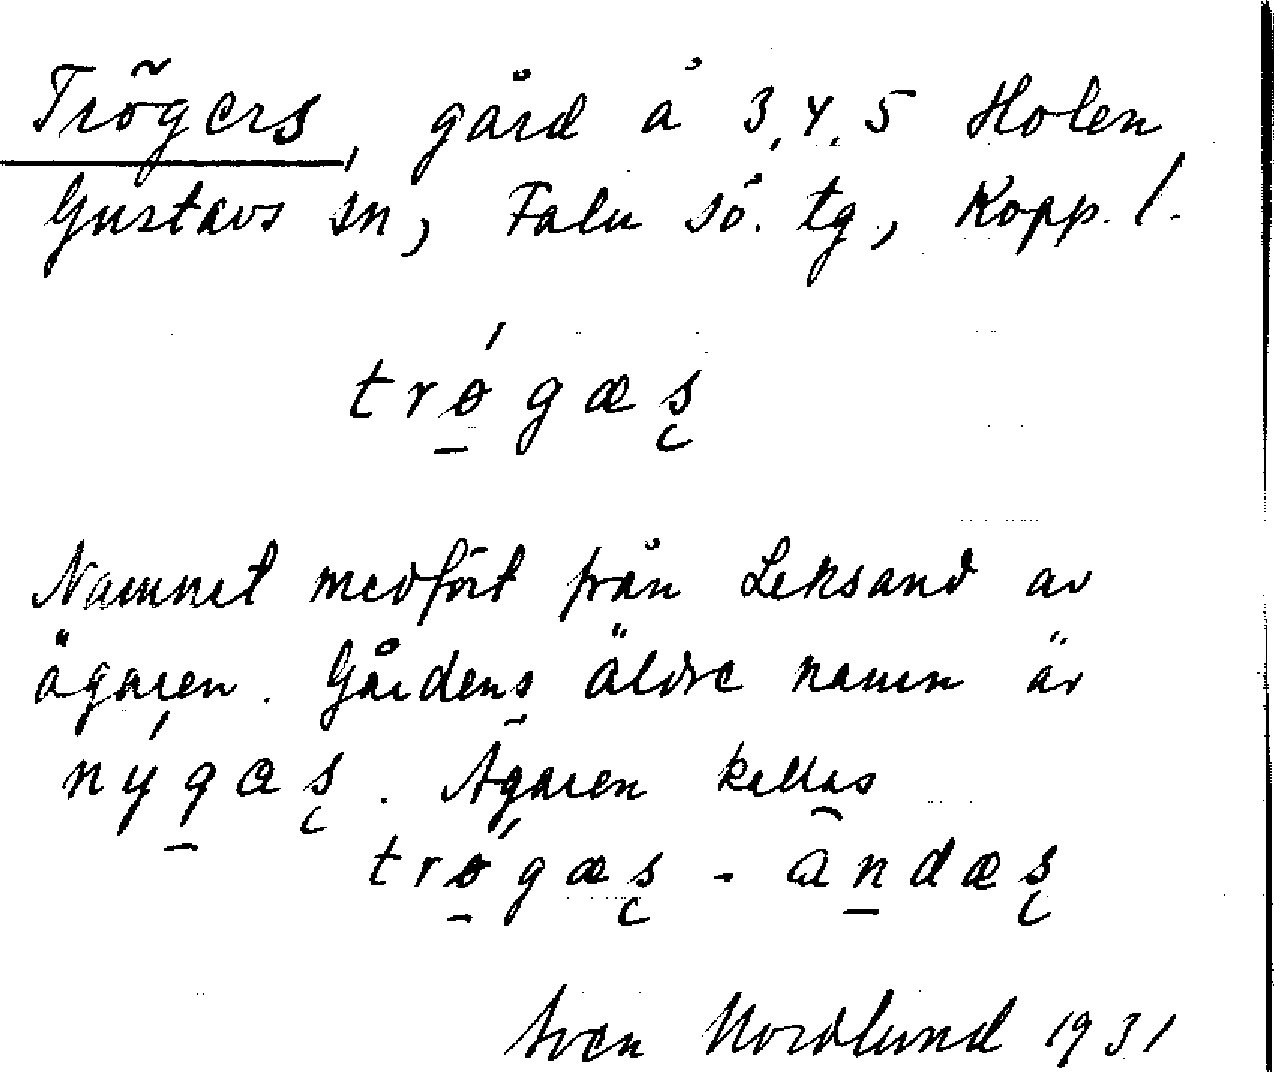 Trögers, gård å 3,4,5 Holen
Gustavs sn, Falu sö. tg, Kopp. l.
trǿ̱gæş
Namnet medfört från Leksand av
ägaren. Gårdens äldre namn är
nýg̱aş. Ägaren kallas
trǿ̱gæş - âṉdæş
Sven Nordlund 1931